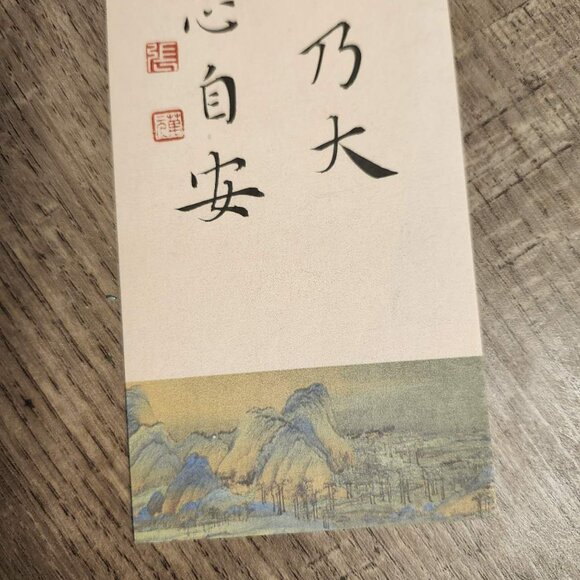 乃大
心自安
張